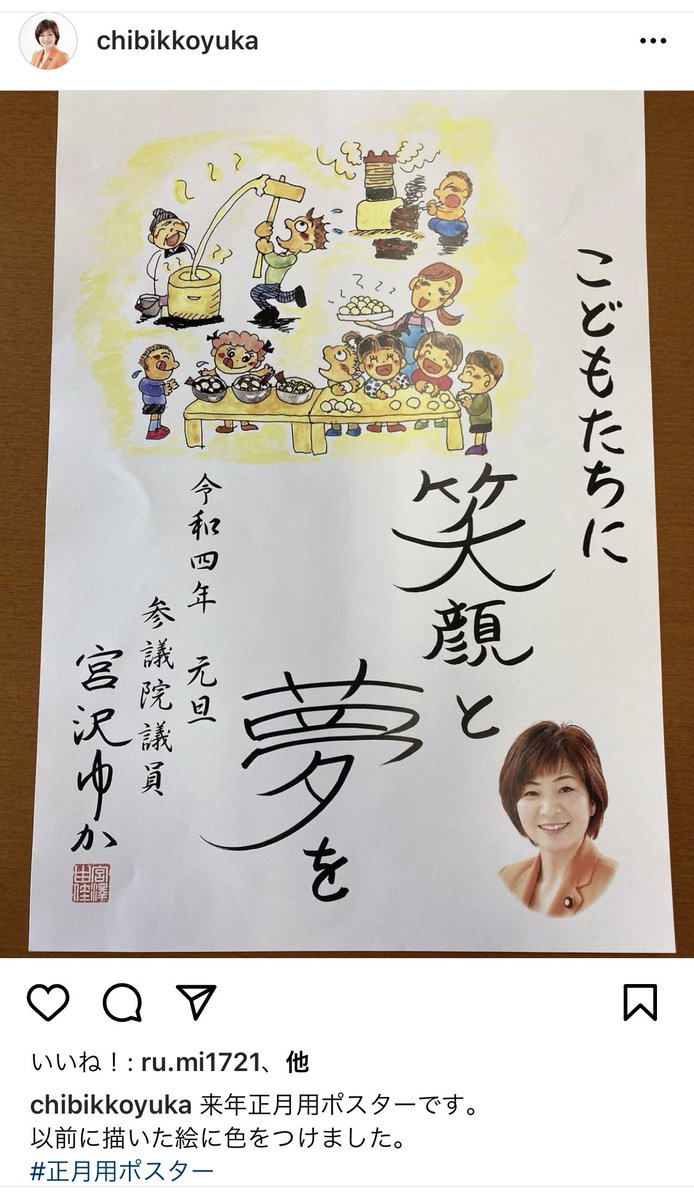 chibikkoyuka
こどもたちに
笑顔と
夢を
令和四年 元旦
参議院議員
宮沢ゆか
宮澤
由佳
いいね！: ru.mi1721、他
chibikkoyuka 来年正月用ポスターです。
以前に描いた絵に色をつけました。
#正月用ポスター